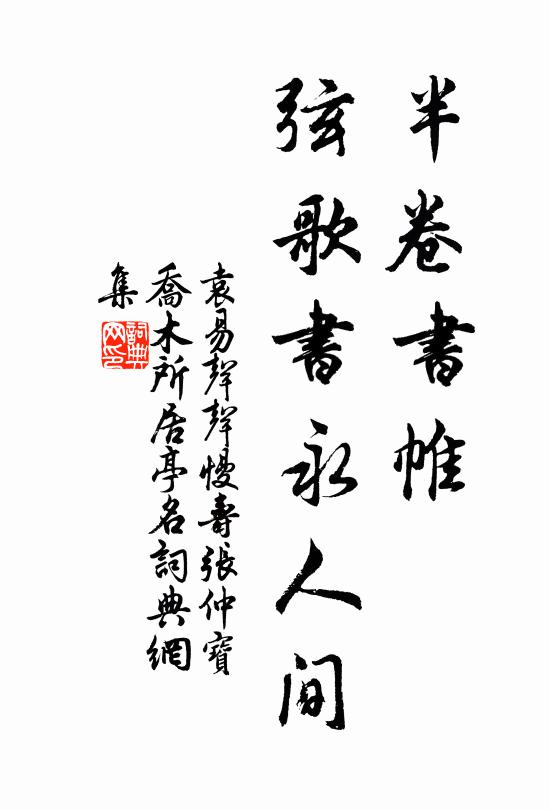 半卷書帷
弦歌書永人间
袁易聲聲慢壽張仲寶
喬木所居亭名詞典網
集
詞典网印